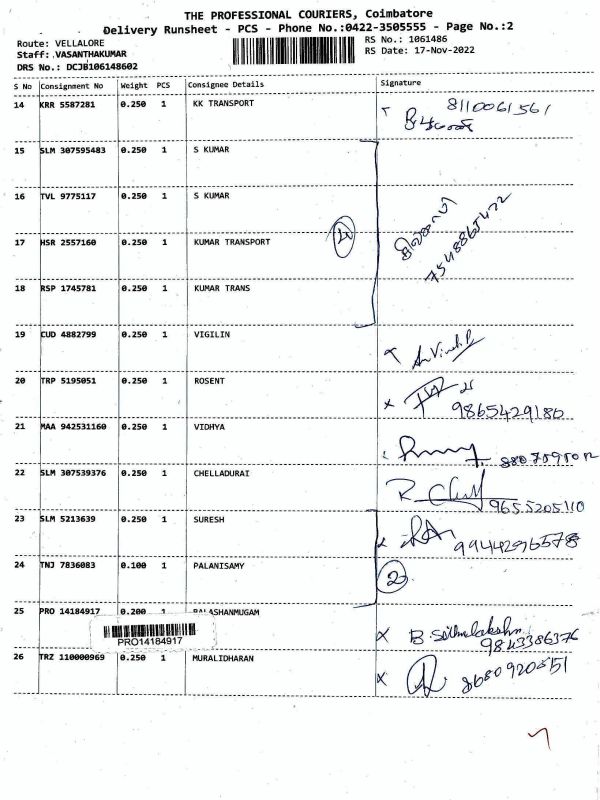 THE PROFESSIONAL COURIERS, Coimbatore
Delivery Runsheet - PCS - Phone No.:0422-3505555 - Page No.:2
Route: VELLALORE
RS No.: 1061486
Staff: VASANTHAKUMAR
RS Date: 17-Nov-2022
DRS No.: DCJB106148602
S No Consignment No Weight PCS Consignee Details Signature
14 KRR 5587281 0.250 1 KK TRANSPORT 8110061561
15 SLM 307595483 0.250 1 S KUMAR
16 TVL 9775117 0.250 1 S KUMAR
17 HSR 2557160 0.250 1 KUMAR TRANSPORT 4 7548865472
18 RSP 1745781 0.250 1 KUMAR TRANS
19 CUD 4882799 0.250 1 VIGILIN
20 TRP 5195051 0.250 1 ROSENT 9865429180
21 MAA 942531160 0.250 1 VIDHYA
22 SLM 307539376 0.250 1 CHELLADURAI 9655205110
23 SLM 5213639 0.250 1 SURESH 9944296578
24 TNJ 7836083 0.100 1 PALANISAMY 2
25 PRO 14184917 0.200 1 BALASHANMUGAM
PRO14184917
9843386376
26 TRZ 110000969 0.250 1 MURALIDHARAN 8680920851